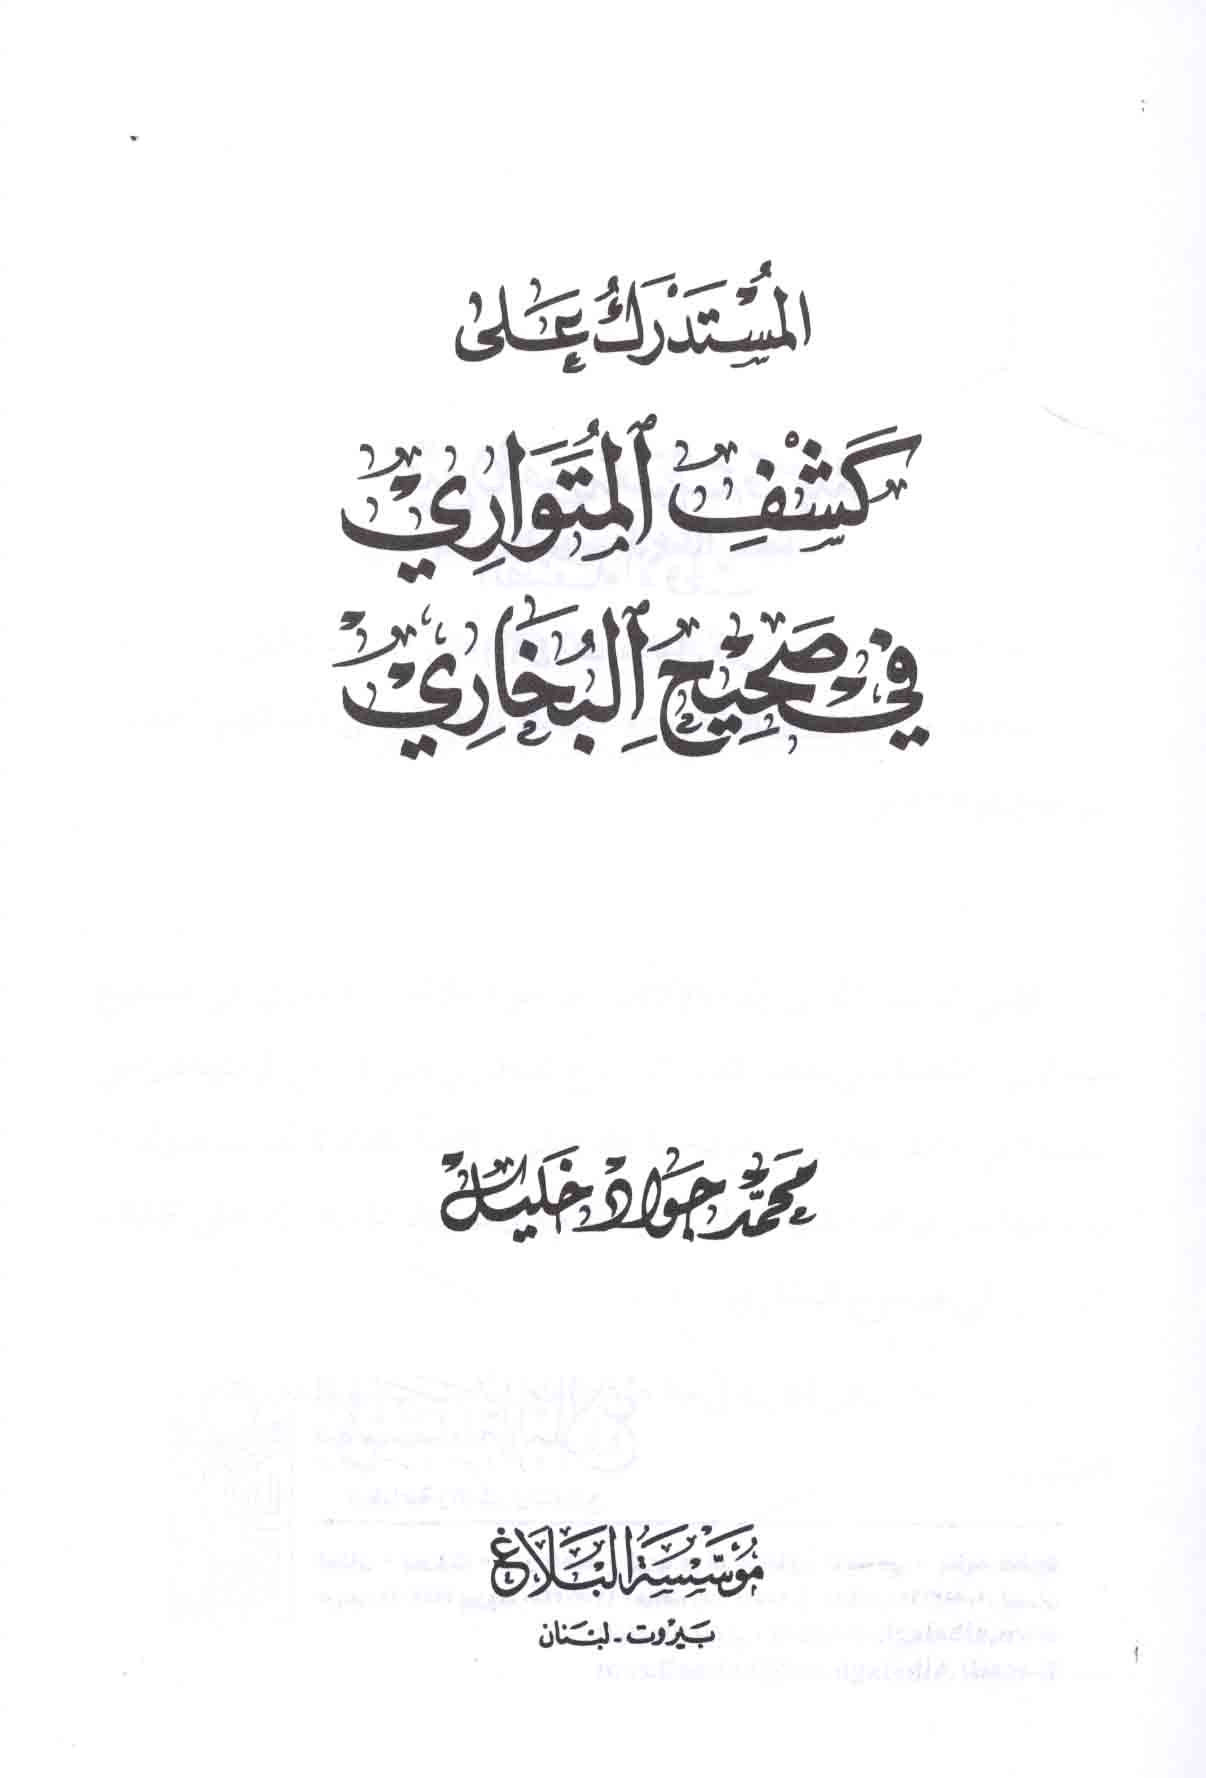 المُسْتَدْرَكُ عَلَى
كَشْفِ المُتَوَارِي
فِي صَحِيحِ البُخَارِي
محمّد جواد خليل
مُؤَسَّسَةُ البَلَاغ
بَيْروت - لبْنَان